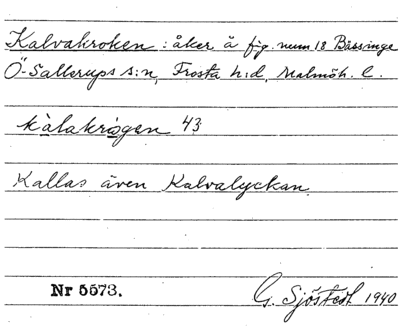 Kalvakroken : åker å fig. num 18 Bässinge
Ö-Sallerups s:n, Frosta h:d, Malmöh. l.
kàlakrògen 43
Kallas även Kalvalyckan.
Nr 5573. G. Sjöstedt 1940